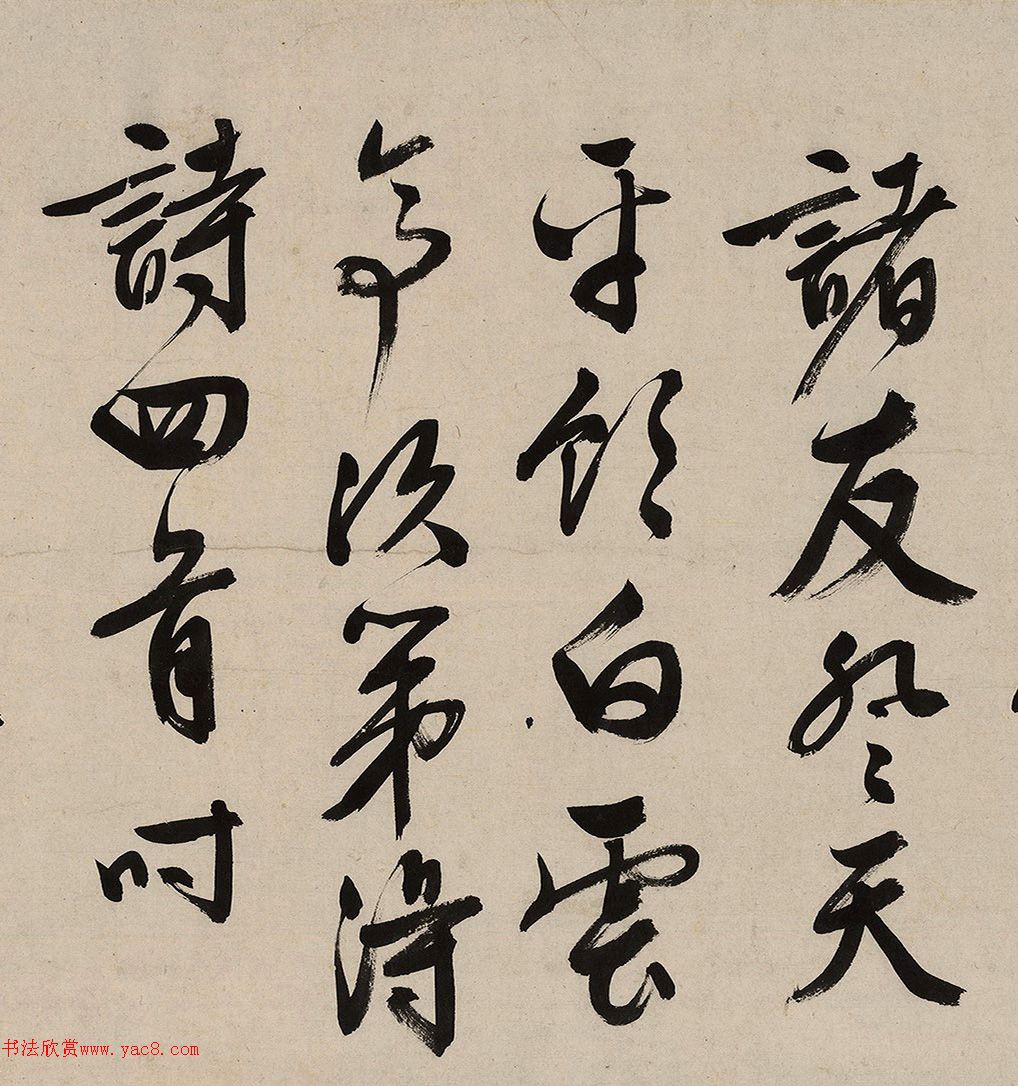 諸友登天
平領白雲
亭次第得
詩四首時
书法欣赏www.yac8.com